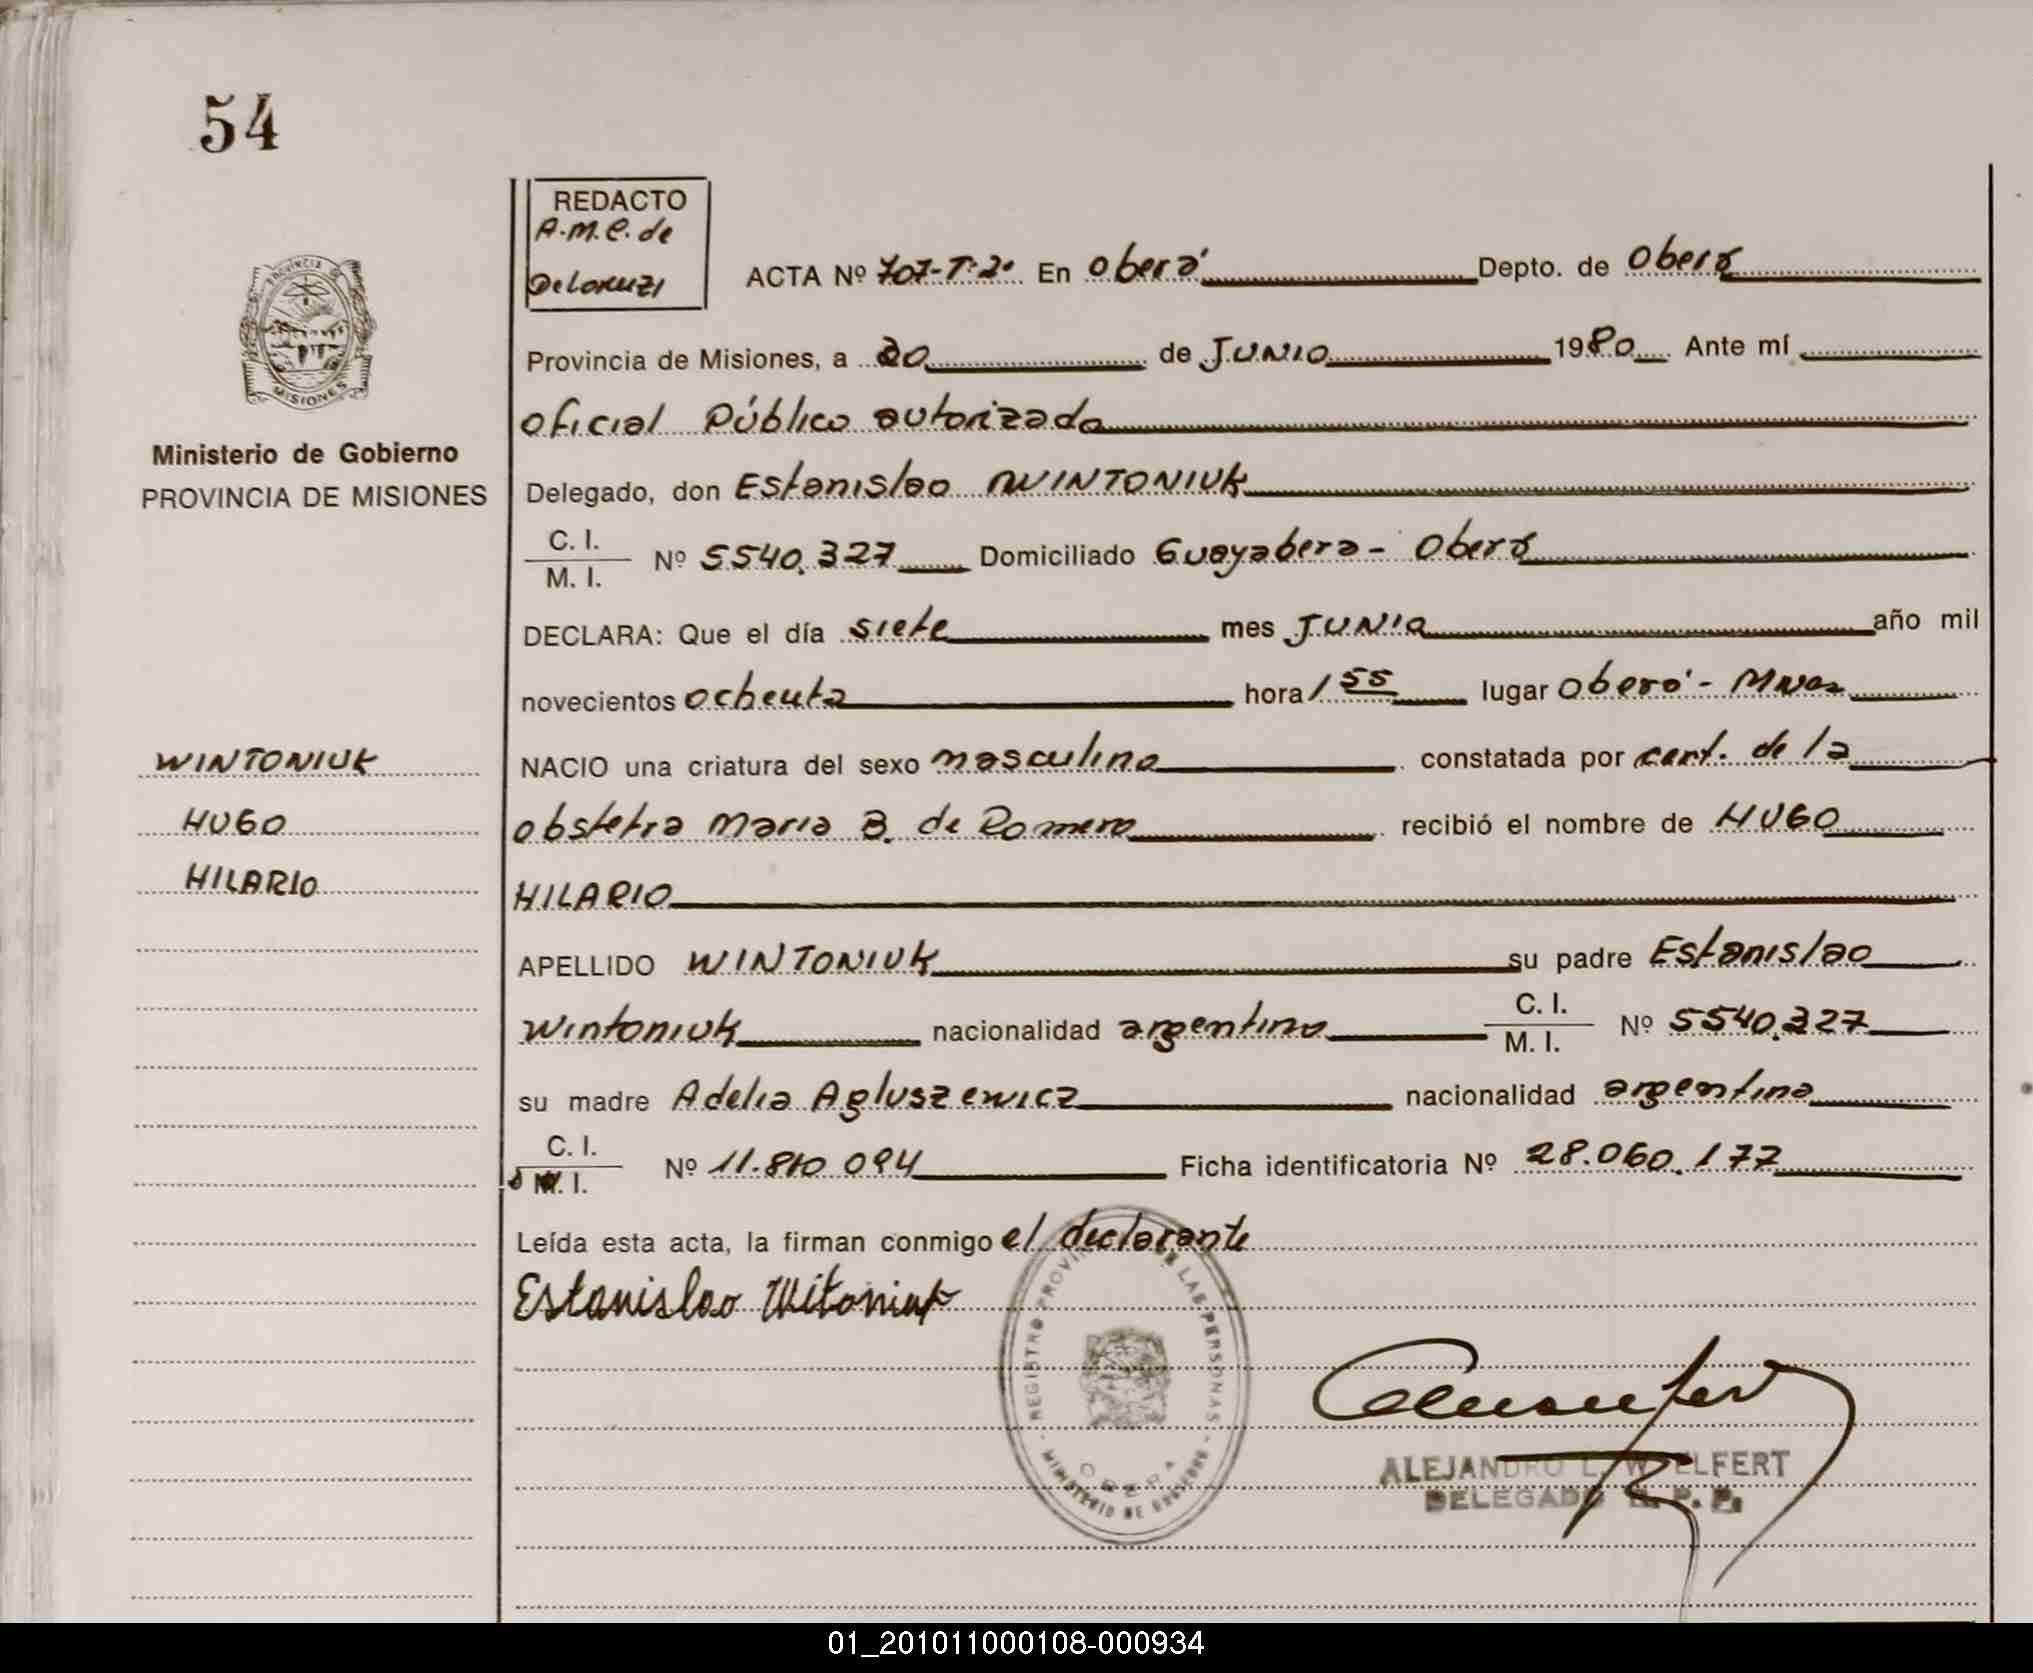 54
REDACTO
A.M.C. de
DeLoruzi
PROVINCIA
MISIONES
Ministerio de Gobierno
PROVINCIA DE MISIONES
ACTA Nº 707-T:2º En Oberá Depto. de Oberá
Provincia de Misiones, a 20 de JUNIO 1980 Ante mí
Oficial Público autorizado
Delegado, don Estanislao WINTONIUK
C. I.
M. I. Nº 5540.327 Domiciliado Guayabera - Oberá
DECLARA: Que el día siete mes JUNIO año mil
novecientos ochenta hora 1 55 lugar Oberá - Mnes
WINTONIUK
HUGO
HILARIO
NACIO una criatura del sexo masculino constatada por cert. de la
obstetra Maria B. de Romero recibió el nombre de HUGO
HILARIO
APELLIDO WINTONIUK su padre Estanislao
Wintoniuk nacionalidad argentino C. I.
M. I. Nº 5540.327
su madre Adelia Agluszewicz nacionalidad argentina
C. I.
M. I. Nº 11.810.094 Ficha identificatoria Nº 28.060.177
Leída esta acta, la firman conmigo el declarante
Estanislao Witoniuk
REGISTRO PROVI LAS PERSONAS
OBERA
MINISTERIO DE GOBIERNO
ALEJANDRO L. W ELFERT
DELEGADO R. P. P.
01_201011000108-000934